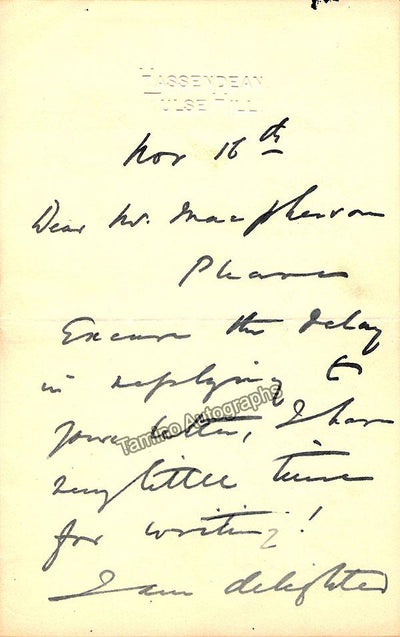 HASSENDEAN
TULSE HILL
Nov 16th
Dear Mr. Macpherson
Please
Excuse the delay
in replying to
your letter, I have
very little time
for writing!
I am delighted
Tamino Autographs